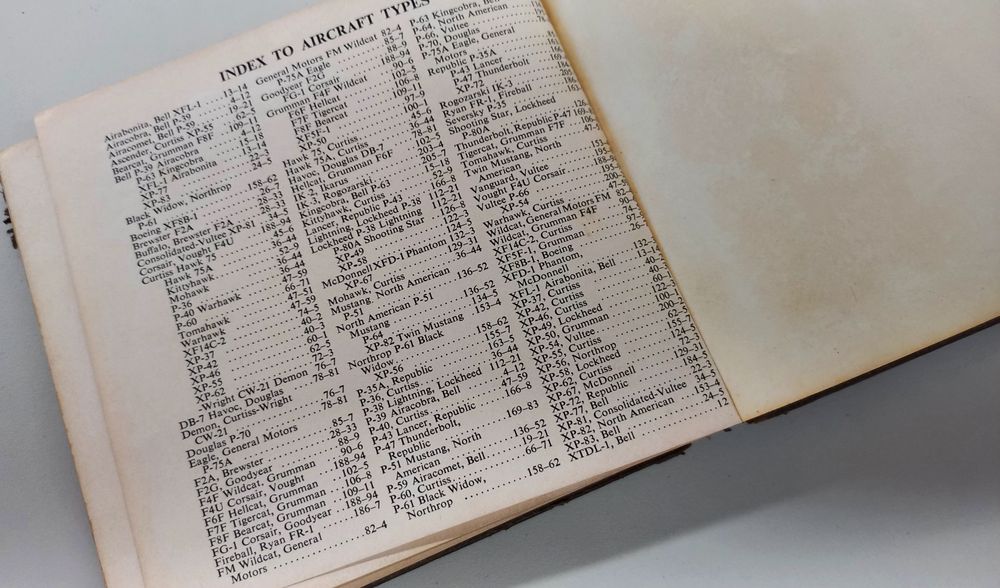 INDEX TO AIRCRAFT TYPES
Airabonita, Bell XFL-1 ..... 13-14
Airacobra, Bell P-39 ..... 4-12
Airacomet, Bell P-59 ..... 19-21
Ascender, Curtiss XP-55 ..... 62-5
Bearcat, Grumman F8F ..... 109-11
Bell P-39 Airacobra ..... 4-12
P-63 Kingcobra ..... 15-18
XFL-1 Airabonita ..... 13-14
XP-77 ..... 22-3
XP-83
Black Widow, Northrop
P-61 ..... 158-62
Boeing XF8B-1 ..... 26-7
Brewster F2A ..... 28-33
Buffalo, Brewster F2A ..... 28-33
Consolidated-Vultee XP-81 ..... 34-5
Corsair, Vought F4U ..... 188-94
Curtiss Hawk 75 ..... 45-6
Hawk 75A ..... 36-44
Kittyhawk
Mohawk ..... 36-44
P-36 ..... 36-44
P-40 Warhawk ..... 47-59
P-60 ..... 66-71
Tomahawk ..... 47-51
Warhawk ..... 47-59
XF14C-2 ..... 74-5
XP-37 ..... 40-2
XP-42 ..... 40-3
XP-46
XP-55 ..... 62-5
XP-62 ..... 72-3
-Wright CW-21 Demon ..... 76-7
DB-7 Havoc, Douglas ..... 78-81
Demon, Curtiss-Wright
CW-21 ..... 76-7
Douglas P-70 ..... 78-81
Eagle, General Motors
P-75A ..... 85-7
F2A, Brewster ..... 28-33
F2G, Goodyear ..... 88-9
F4F Wildcat, Grumman ..... 90-6
F4U Corsair, Vought ..... 188-94
F6F Hellcat, Grumman ..... 102-5
F7F Tigercat, Grumman ..... 106-8
F8F Bearcat, Grumman ..... 109-11
FG-1 Corsair, Goodyear ..... 188-94
Fireball, Ryan FR-1 ..... 186-7
FM Wildcat, General
Motors ..... 82-4
General Motors FM Wildcat 82-4
P-75A Eagle ..... 85-7
Goodyear F2G ..... 88-9
FG-1 Corsair ..... 188-94
Grumman F4F Wildcat ..... 90-6
F6F Hellcat ..... 102-5
F7F Tigercat ..... 106-8
F8F Bearcat ..... 109-11
XF5F-1
XP-50 ..... 100-1
Hawk 75, Curtiss ..... 45-6
Hawk 75A, Curtiss ..... 36-44
Havoc, Douglas DB-7 ..... 78-81
Hellcat, Grumman F6F
IK-2, Ikarus
IK-3, Rogozarski
Kingcobra, Bell P-63
Kittyhawk, Curtiss ..... 52-9
Lancer, Republic P-43 ..... 166-8
Lightning, Lockheed P-38 ..... 112-21
Lockheed P-38 Lightning ..... 112-21
P-80A Shooting Star
XP-49 ..... 122-3
XP-58 ..... 124-5
McDonnell XFD-1 Phantom 132-3
XP-67 ..... 129-31
Mohawk, Curtiss ..... 36-44
Mustang, North American
P-51 ..... 136-52
North American P-51
Mustang ..... 136-52
P-64 ..... 134-5
XP-82 Twin Mustang ..... 153-4
Northrop P-61 Black
Widow ..... 158-62
XP-56 ..... 155-7
P-35A, Republic ..... 163-5
P-36, Curtiss ..... 36-44
P-38 Lightning, Lockheed 112-21
P-39 Airacobra, Bell ..... 4-12
P-40, Curtiss ..... 47-59
P-43 Lancer, Republic ..... 166-8
P-47 Thunderbolt,
Republic ..... 169-83
P-51 Mustang, North
American ..... 136-52
P-59 Airacomet, Bell ..... 19-21
P-60, Curtiss ..... 66-71
P-61 Black Widow,
Northrop ..... 158-62
P-63 Kingcobra, Bell
P-64, North American
P-66, Vultee
P-70, Douglas
P-75A Eagle, General
Motors
Republic P-35A
P-43 Lancer
P-47 Thunderbolt
XP-72
Rogozarski IK-3
Ryan FR-1, Fireball
Seversky P-35
Shooting Star, Lockheed
P-80A
Thunderbolt, Republic P-47
Tigercat, Grumman F7F
Tomahawk, Curtiss
Twin Mustang, North
American
Vanguard, Vultee
Vought F4U Corsair
Vultee P-66
XP-54
Warhawk, Curtiss
Wildcat, General Motors FM
Wildcat, Grumman F4F
XF14C-2, Curtiss
XF5F-1, Grumman
XF8B-1, Boeing
XFD-1 Phantom,
McDonnell
XFL-1 Airabonita, Bell
XP-37, Curtiss
XP-42, Curtiss
XP-46, Curtiss
XP-49, Lockheed
XP-50, Grumman
XP-54, Vultee
XP-55, Curtiss
XP-56, Northrop
XP-58, Lockheed
XP-62, Curtiss
XP-67, McDonnell
XP-72, Republic
XP-77, Bell
XP-81, Consolidated-Vultee
XP-82, North American ..... 153-4
XP-83, Bell ..... 24-5
XTDL-1, Bell ..... 12